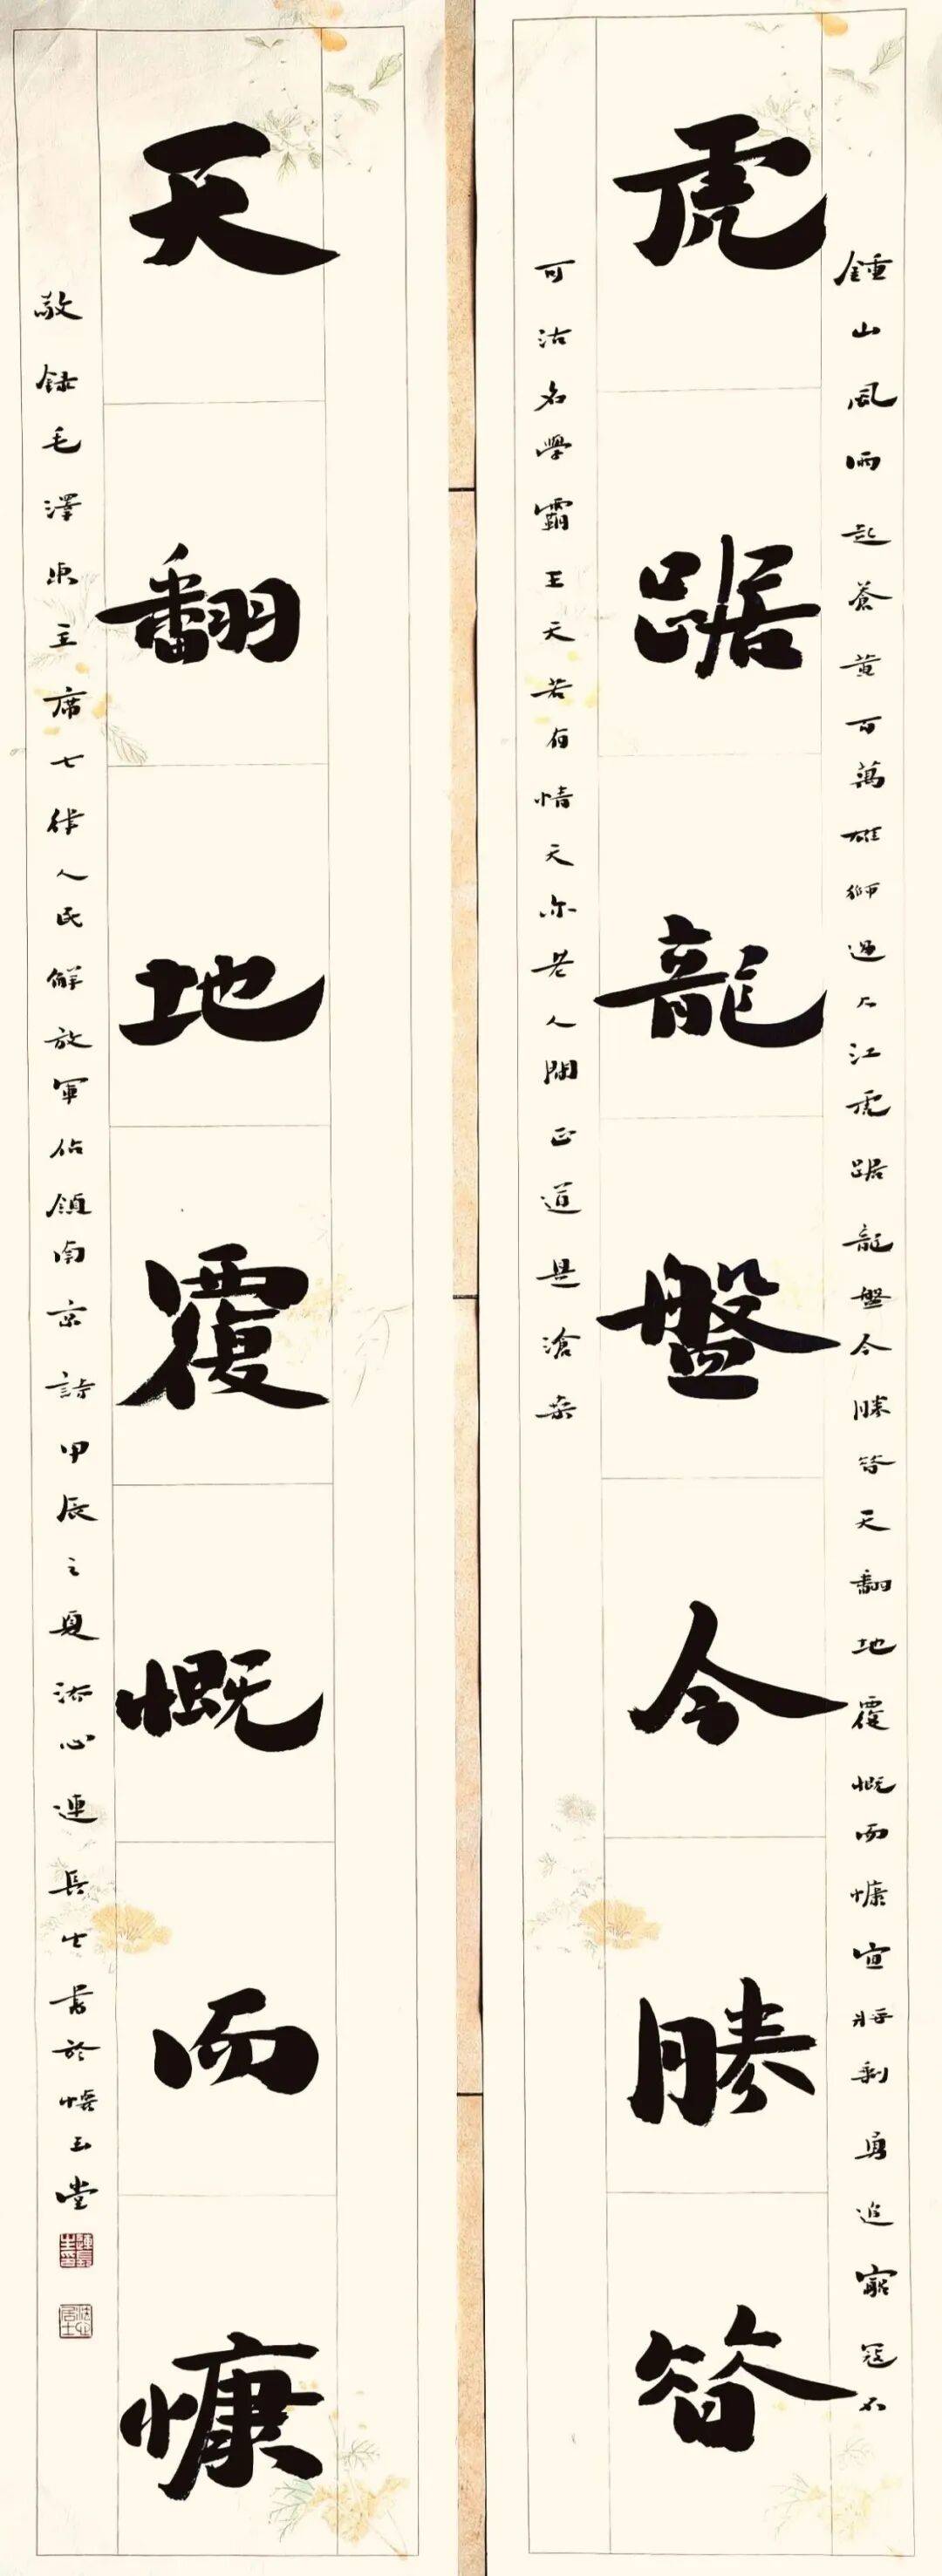 鍾山風雨起蒼黃百萬雄獅過大江虎踞龍盤今勝昔天翻地覆慨而慷宜將剩勇追窮寇不
虎踞龍盤今勝昔
可沽名學霸王天若有情天亦老人間正道是滄桑
天翻地覆慨而慷
敬錄毛澤東主席七律人民解放軍佔領南京詩甲辰之夏心連長生書於悟玉堂
連長生印